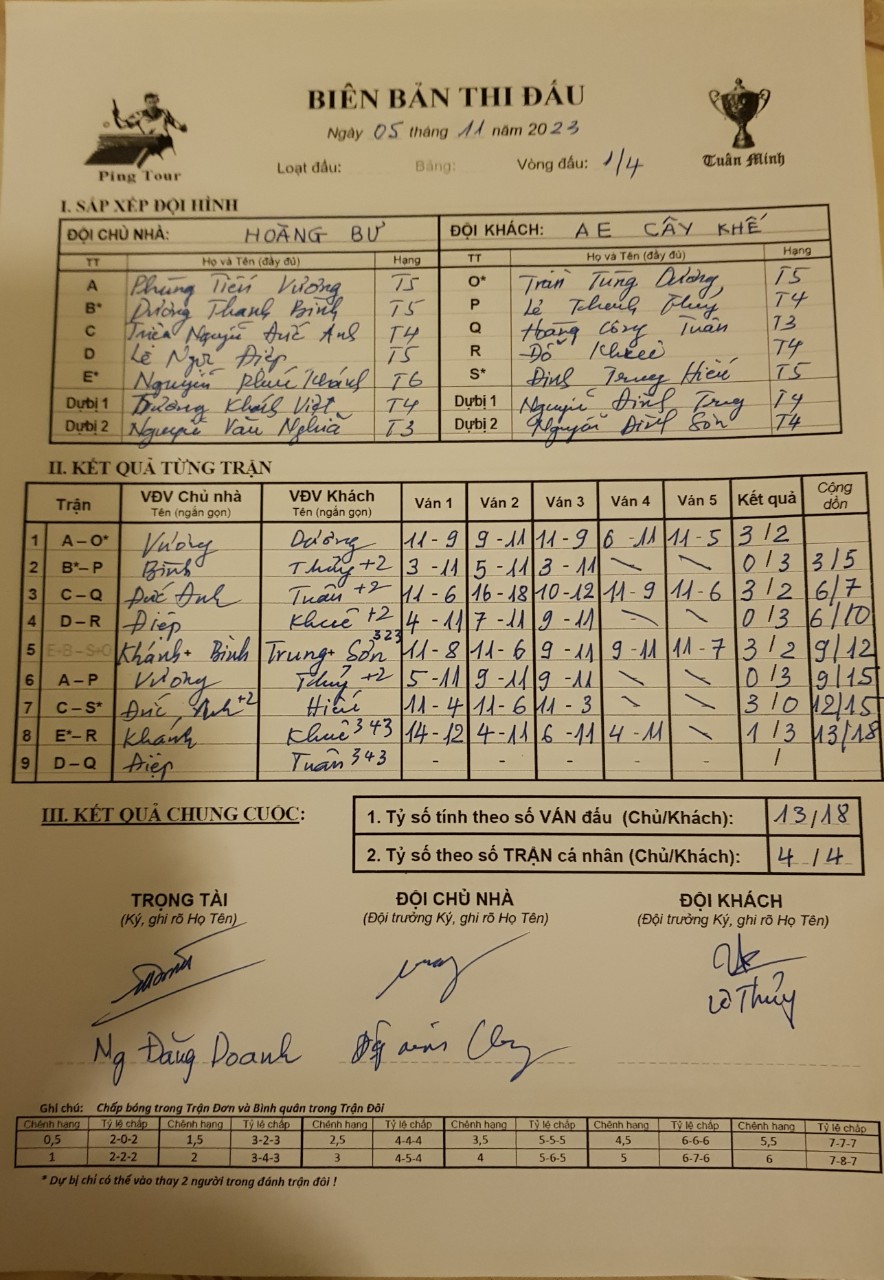 BIÊN BẢN THI ĐẤU
Ngày 05 tháng 11 năm 2023
Ping Tour
Loạt đấu: Bảng: Vòng đấu: 1/4
Tuấn Minh
I. SẮP XẾP ĐỘI HÌNH
ĐỘI CHỦ NHÀ: HOÀNG BƯ ĐỘI KHÁCH: AE CÂY KHẾ
TT Họ và Tên (đầy đủ) Hạng TT Họ và Tên (đầy đủ) Hạng
A Phùng Tiến Vương T5 O* Trần Tùng Dương T5
B* Dương Thanh Bình T5 P Lê Thanh Thủy T4
C Triệu Nguyễn Đức Anh T4 Q Hoàng Công Tuấn T3
D Lê Ngọc Điệp T5 R Đỗ Khuê T4
E* Nguyễn Phúc Khánh T6 S* Đinh Trung Hiếu T5
Dự bị 1 Trương Khánh Việt T4 Dự bị 1 Nguyễn Đình Trung T4
Dự bị 2 Nguyễn Văn Nghĩa T3 Dự bị 2 Nguyễn Đình Sơn T4
II. KẾT QUẢ TỪNG TRẬN
Trận VĐV Chủ nhà Tên (ngắn gọn) VĐV Khách Tên (ngắn gọn) Ván 1 Ván 2 Ván 3 Ván 4 Ván 5 Kết quả Cộng dồn
1 A – O* Vương Dương 11 - 9 9 - 11 11 - 9 6 - 11 11 - 5 3 / 2
2 B* – P Bình Thủy +2 3 - 11 5 - 11 3 - 11 \ \ 0 / 3 3/5
3 C – Q Đức Anh Tuấn +2 11 - 6 16 - 18 10 - 12 11 - 9 11 - 6 3 / 2 6/7
4 D – R Điệp Khuê +2 4 - 11 7 - 11 9 - 11 \ \ 0 / 3 6/10
5 E+B – S+O Khánh + Bình Trung + Sơn 323 11 - 8 11 - 6 9 - 11 9 - 11 11 - 7 3 / 2 9/12
6 A – P Vương Thủy +2 5 - 11 9 - 11 9 - 11 \ \ 0 / 3 9/15
7 C – S* Đức Anh +2 Hiếu 11 - 4 11 - 6 11 - 3 \ \ 3 / 0 12/15
8 E* – R Khánh Khuê 343 14 - 12 4 - 11 6 - 11 4 - 11 \ 1 / 3 13/18
9 D – Q Điệp Tuấn 343 - - - - - /
III. KẾT QUẢ CHUNG CUỘC:
1. Tỷ số tính theo số VÁN đấu (Chủ/Khách): 13/18
2. Tỷ số theo số TRẬN cá nhân (Chủ/Khách): 4 / 4
TRỌNG TÀI ĐỘI CHỦ NHÀ ĐỘI KHÁCH
(Ký, ghi rõ Họ Tên) (Đội trưởng Ký, ghi rõ Họ Tên) (Đội trưởng Ký, ghi rõ Họ Tên)
Lê Thủy
Ng Đăng Doanh
Ghi chú: Chấp bóng trong Trận Đơn và Bình quân trong Trận Đôi
Chênh hạng Tỷ lệ chấp Chênh hạng Tỷ lệ chấp Chênh hạng Tỷ lệ chấp Chênh hạng Tỷ lệ chấp Chênh hạng Tỷ lệ chấp Chênh hạng Tỷ lệ chấp
0,5 2-0-2 1,5 3-2-3 2,5 4-4-4 3,5 5-5-5 4,5 6-6-6 5,5 7-7-7
1 2-2-2 2 3-4-3 3 4-5-4 4 5-6-5 5 6-7-6 6 7-8-7
* Dự bị chỉ có thể vào thay 2 người trong đánh trận đôi !